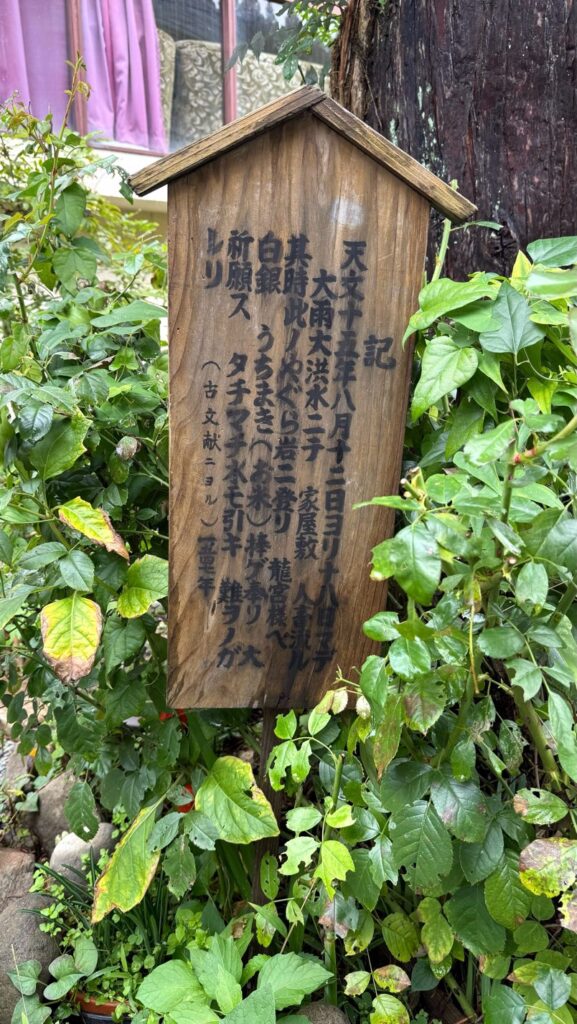 記
天文十五年八月十二日ヨリ十八日マデ
大雨大洪水ニテ 家屋敷 人畜流ル
其時此ノめぐら岩ニ登リ 龍宮様へ
白銀 うちまき(お米)捧ゲ奉リ 大
祈願ス タチマチ水モ引キ 難ヲノガ
レリ
(古文献ニヨル)